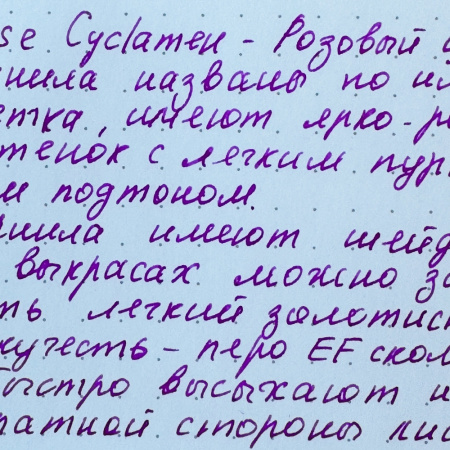 se Cyclamen - Розовый
нила названы по и
етка, имеют ярко-р
тенок с легким пур
м подтоном.
нила имеют шейд
выкрасах можно за
ть легкий золотис
кучесть - перо EF скол
быстро высыхают и
ратной стороны лис